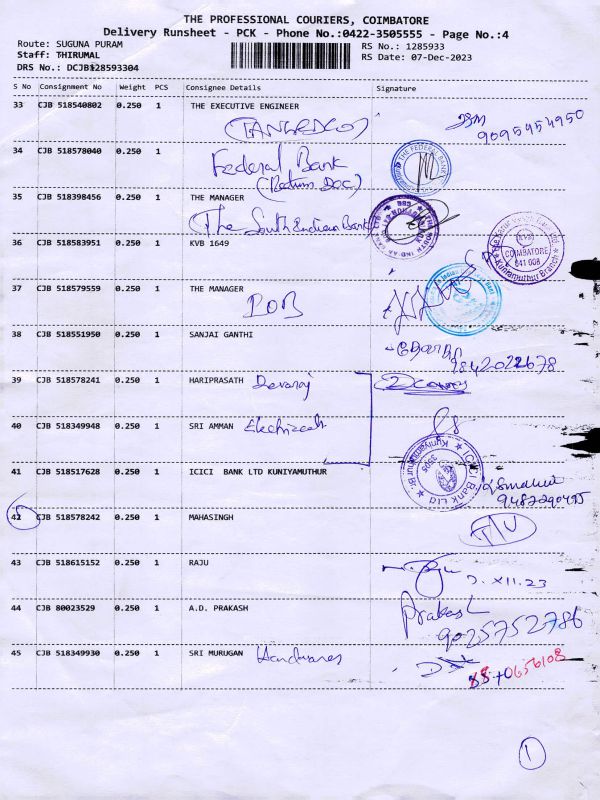 THE PROFESSIONAL COURIERS, COIMBATORE
Delivery Runsheet - PCK - Phone No.:0422-3505555 - Page No.:4
Route: SUGUNA PURAM
RS No.: 1285933
Staff: THIRUMAL
RS Date: 07-Dec-2023
DRS No.: DCJB128593304
S No Consignment No Weight PCS Consignee Details Signature
33 CJB 518540802 0.250 1 THE EXECUTIVE ENGINEER
(TANGEDCO) 9095454950
34 CJB 518578040 0.250 1 Federal Bank
(Return Doc) THE FEDERAL BANK
35 CJB 518398456 0.250 1 THE MANAGER
(The South Indian Bank)
36 CJB 518583951 0.250 1 KVB 1649
COIMBATORE
641 008
Kuniamuthur Branch
37 CJB 518579559 0.250 1 THE MANAGER
IOB
38 CJB 518551950 0.250 1 SANJAI GANTHI
9842022678
39 CJB 518578241 0.250 1 HARIPRASATH Devaraj
40 CJB 518349948 0.250 1 SRI AMMAN Electricals
41 CJB 518517628 0.250 1 ICICI BANK LTD KUNIYAMUTHUR
ICICI Bank Ltd
9487290495
42 CJB 518578242 0.250 1 MAHASINGH
43 CJB 518615152 0.250 1 RAJU
7.XII.23
44 CJB 80023529 0.250 1 A.D. PRAKASH Prakash
9025752786
45 CJB 518349930 0.250 1 SRI MURUGAN Hardwares
1